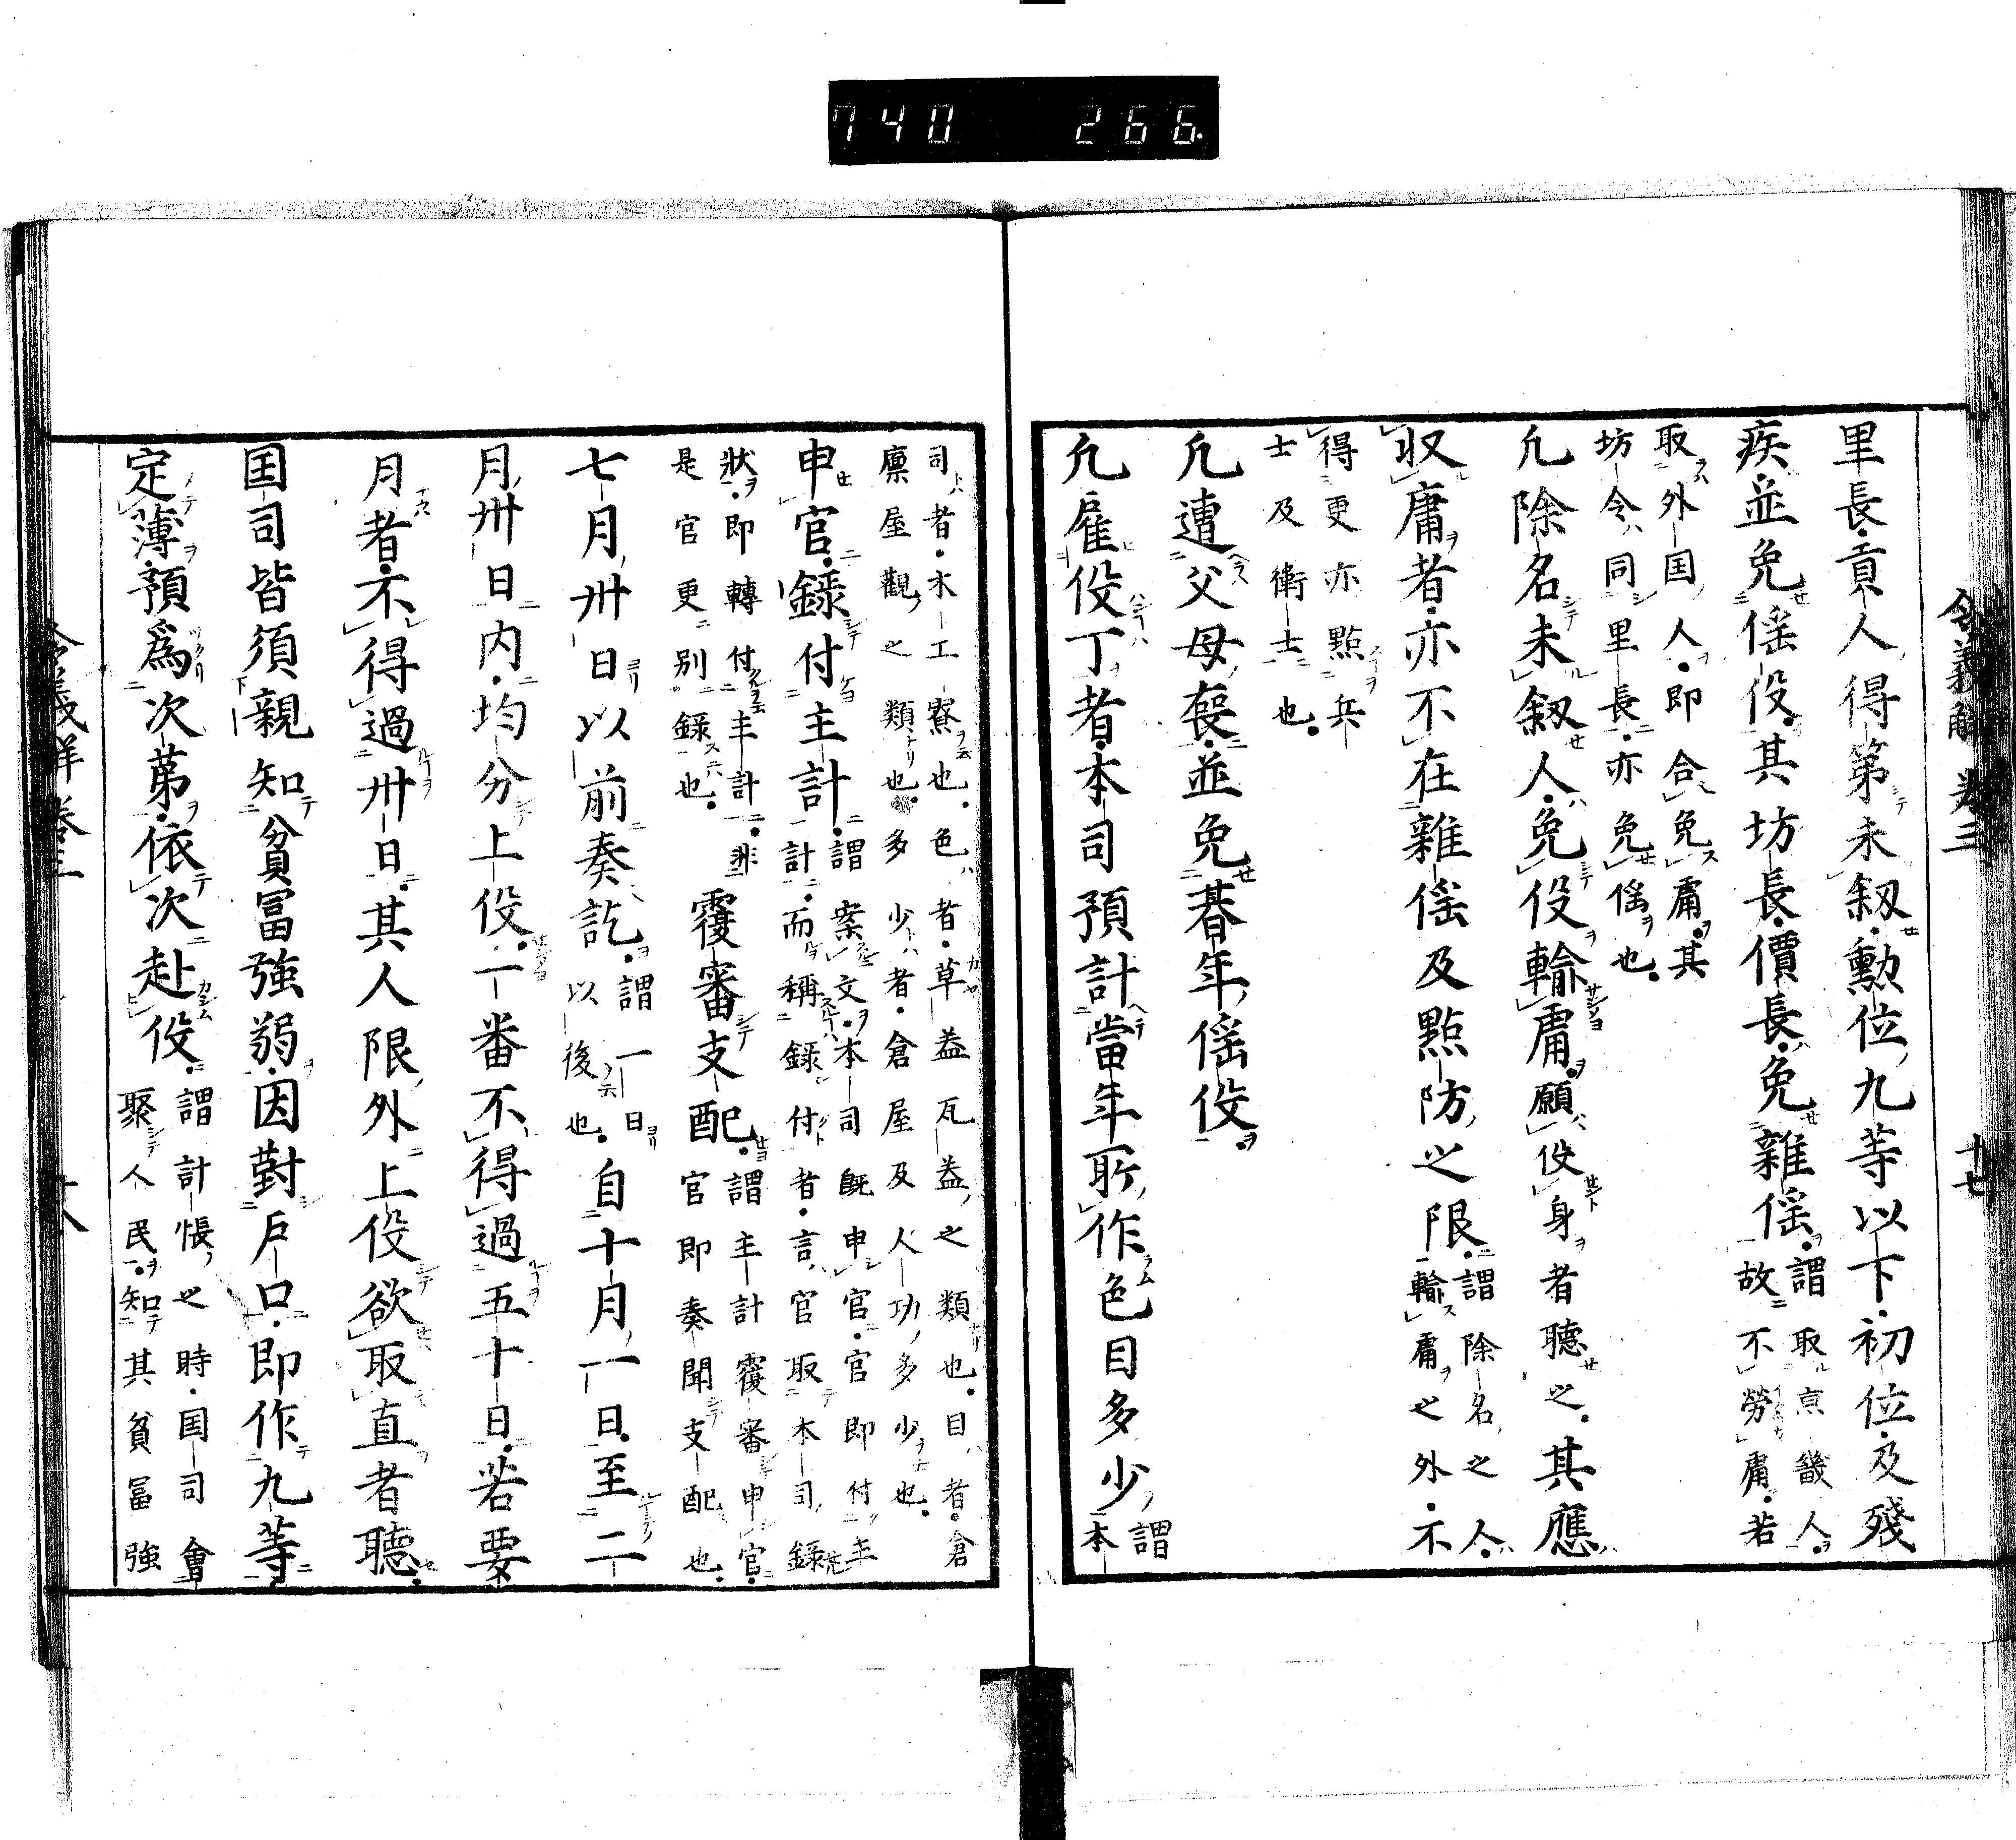 740 266
令義解 卷三 十七
里長貢人得第未叙勳位九等以下初位及殘
疾並免徭役其坊長價長免雜徭謂取京畿人故不勞庸若
取外国人即合免庸其
坊令同里長亦免徭也
凢除名未叙人免役輸庸願役身者聽之其應
収庸者亦不在雜徭及點防之限謂除名之人不輸庸之外不
得更亦點兵
士及衛士也
凢遭父母喪並免朞年徭役
凢雇役丁者本司預計當年所作色目多少謂本
司者木工寮也色者草葢瓦葢之類也目者倉
廪屋觀之類也多少者倉屋及人功多少也
申官錄付主計謂案文本司既申官官即付主計而稱錄付者言官取本司錄
狀即轉付主計非
是官更別錄也
覆審支配謂主計覆審申官官即奏聞支配也
七月卅日以前奏訖謂一日以後也自十月一日至二
月卅日内均分上役一番不得過五十日若要
月者不得過卅日其人限外上役欲取直者聽
国司皆須親知貧冨強弱因對戸口即作九等
定薄預爲次第依次赴役謂計帳之時国司會聚人民知其貧冨強